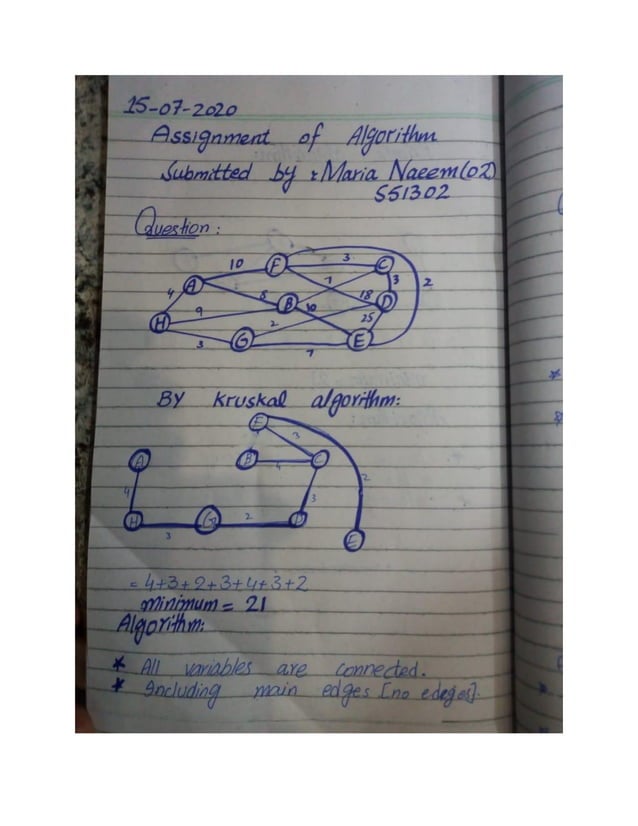 15-07-2020
Assignment of Algorithm
Submitted by : Maria Naeem (02)
551302
Question :
10 F 3 C 2
4 A 8 B 7 3
H 9 10 18 D
3 G 2 25 E
7
BY kruskal algorithm:
F
3
A B 4 C
4 3 2
H G 2 D
3 E
= 4+3+2+3+4+3+2
minimum = 21
Algorithm:
* All variables are connected.
* Including main edges [no edeges].